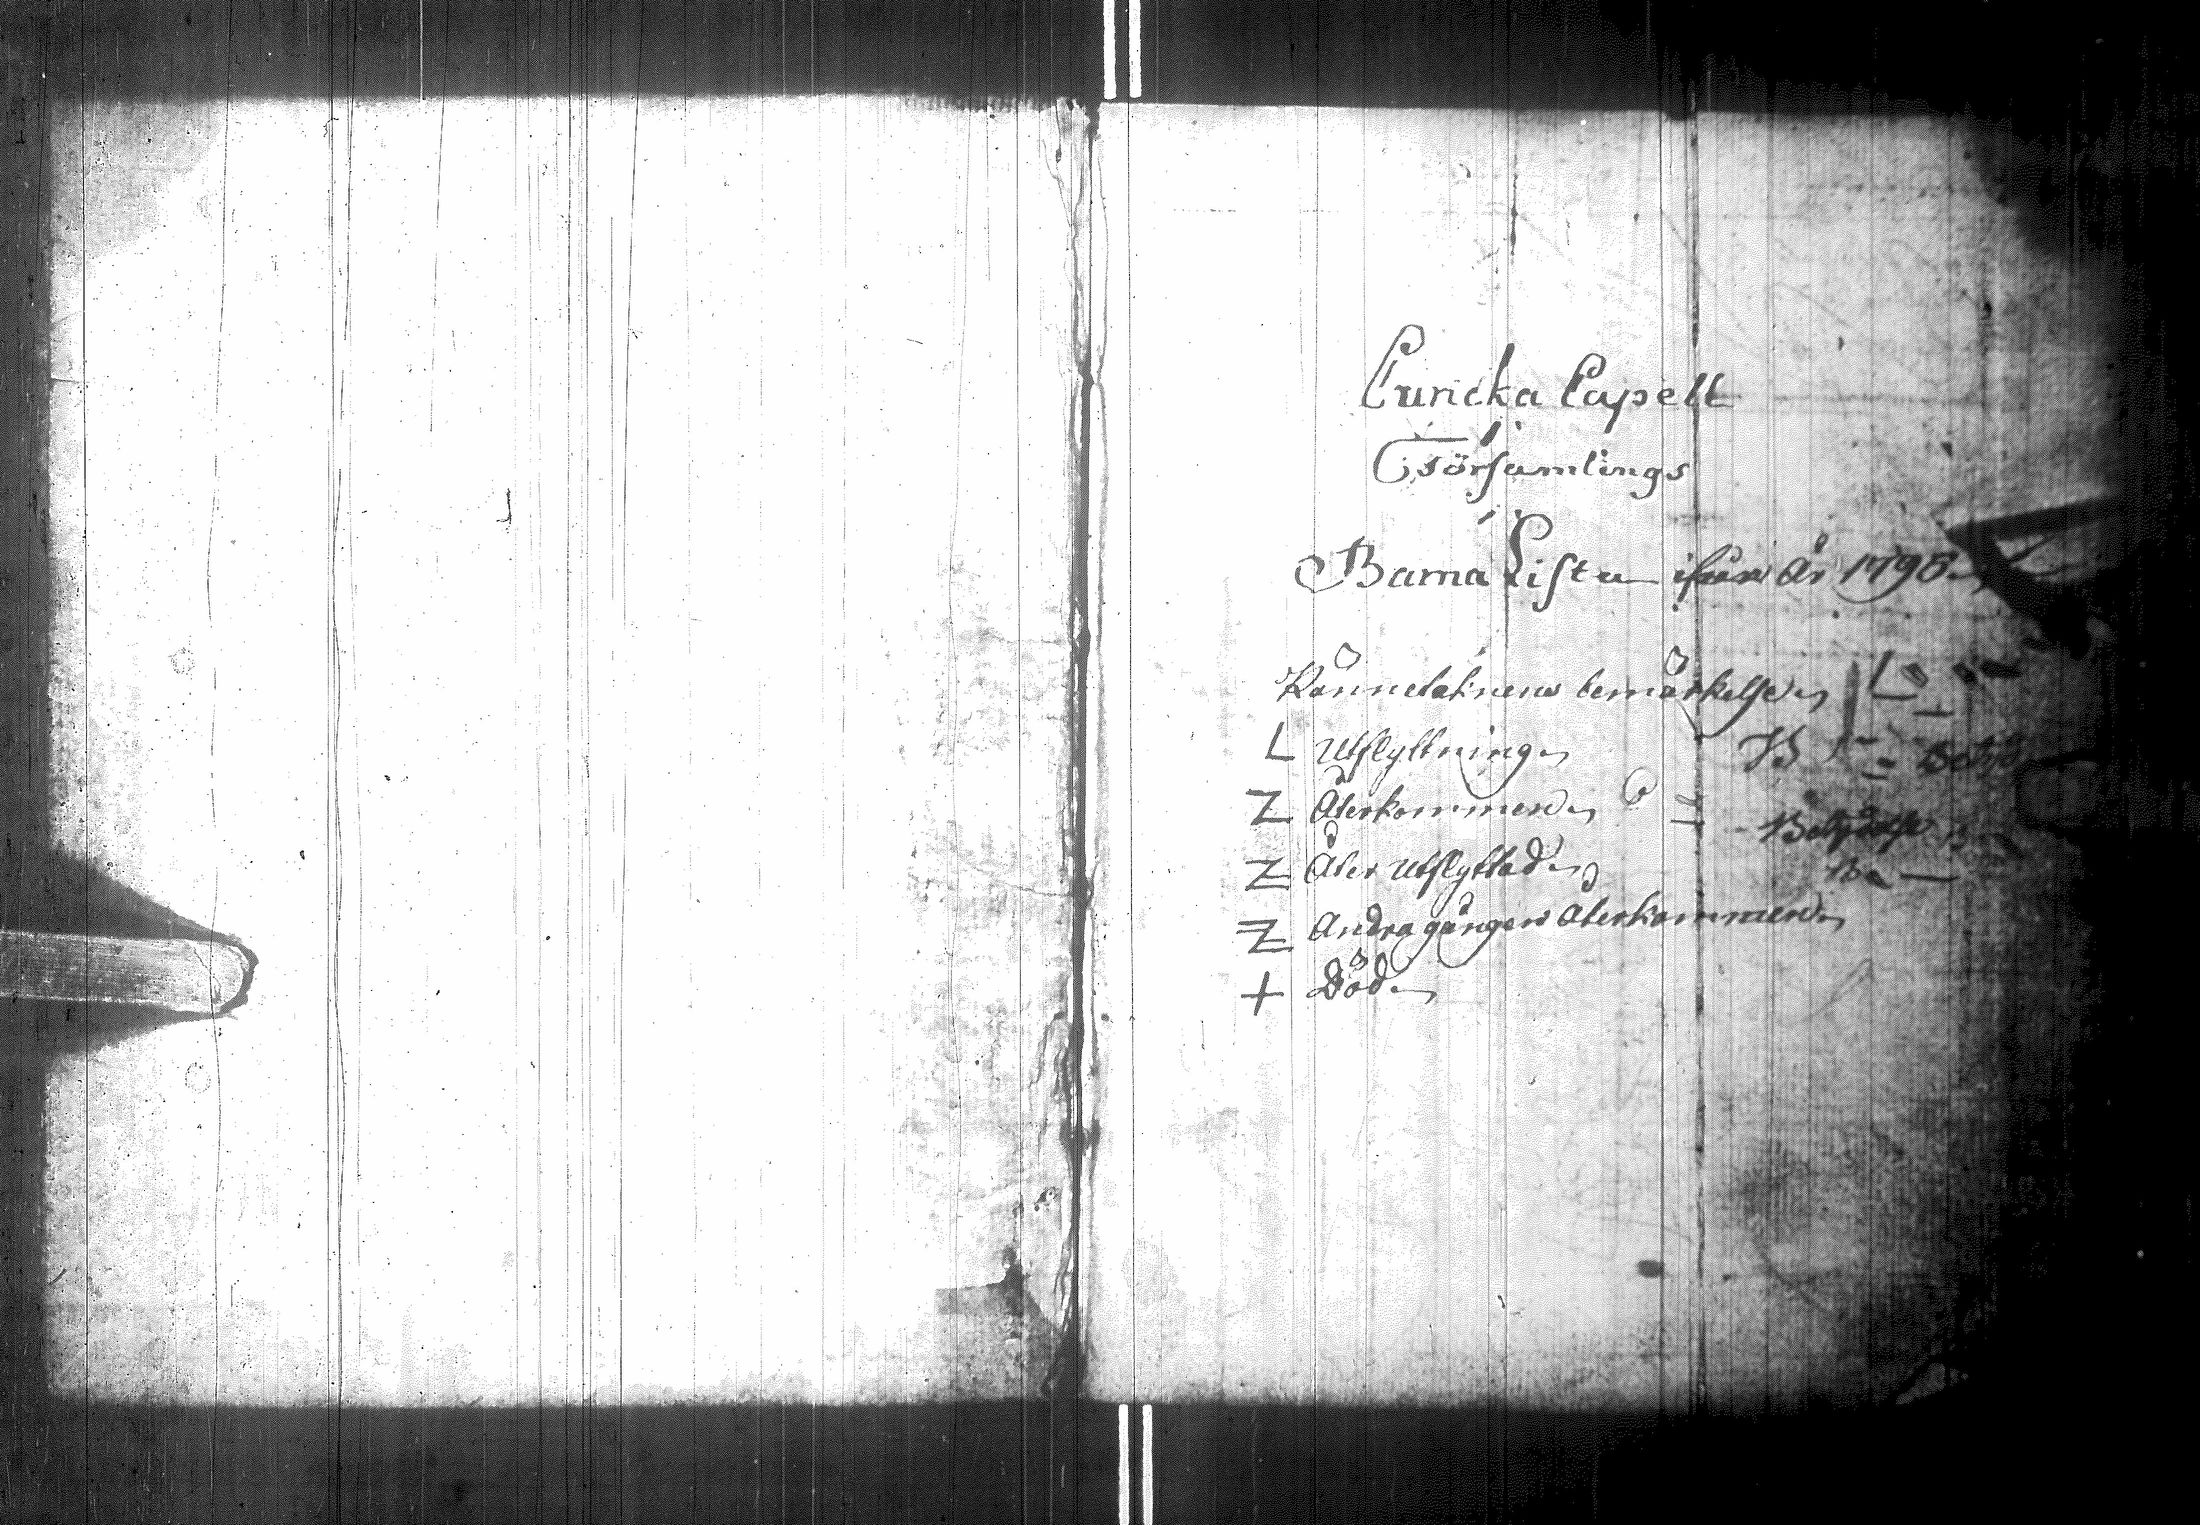 Curicka Capell
Församlings
Barna Lista ifrån År 1795
Kännetaknens bemärkelse
L Utflyttning
Z Återkommen
Z Åter utflyttad
Z Andra gången Återkommen
+ Död